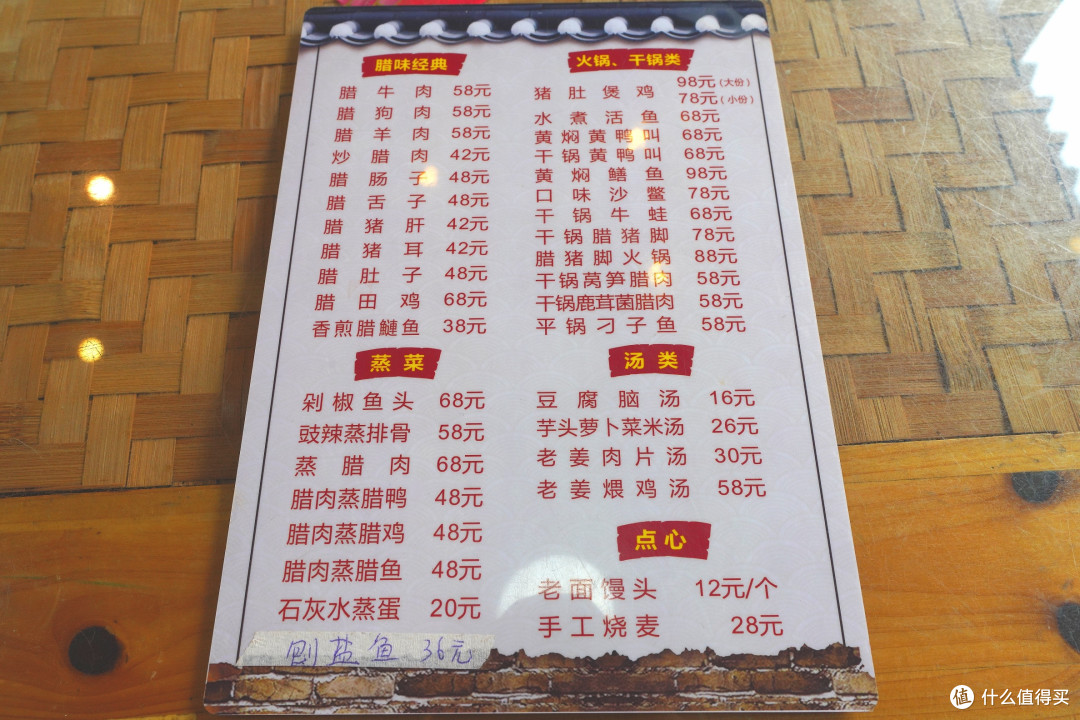 腊味经典
腊牛肉 58元
腊狗肉 58元
腊羊肉 58元
炒腊肉 42元
腊肠子 48元
腊舌子 48元
腊猪肝 42元
腊猪耳 42元
腊肚子 48元
腊田鸡 68元
香煎腊鰱鱼 38元
蒸菜
剁椒鱼头 68元
豉辣蒸排骨 58元
蒸腊肉 68元
腊肉蒸腊鸭 48元
腊肉蒸腊鸡 48元
腊肉蒸腊鱼 48元
石灰水蒸蛋 20元
刨盐鱼 36元
火锅、干锅类
猪肚煲鸡 98元(大份)
78元(小份)
水煮活鱼 68元
黄焖黄鸭叫 68元
干锅黄鸭叫 68元
黄焖鳝鱼 98元
口味沙鳖 78元
干锅牛蛙 68元
干锅腊猪脚 78元
腊猪脚火锅 88元
干锅莴笋腊肉 58元
干锅鹿茸菌腊肉 58元
平锅刁子鱼 58元
汤类
豆腐脑汤 16元
芋头萝卜菜米汤 26元
老姜肉片汤 30元
老姜煨鸡汤 58元
点心
老面馒头 12元/个
手工烧麦 28元
值 什么值得买